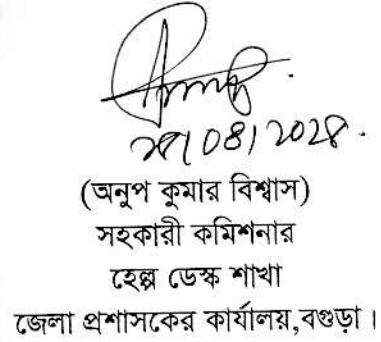 ২৪/০৪/২০২৪.
(অনুপ কুমার বিশ্বাস)
সহকারী কমিশনার
হেল্প ডেস্ক শাখা
জেলা প্রশাসকের কার্যালয়,বগুড়া।